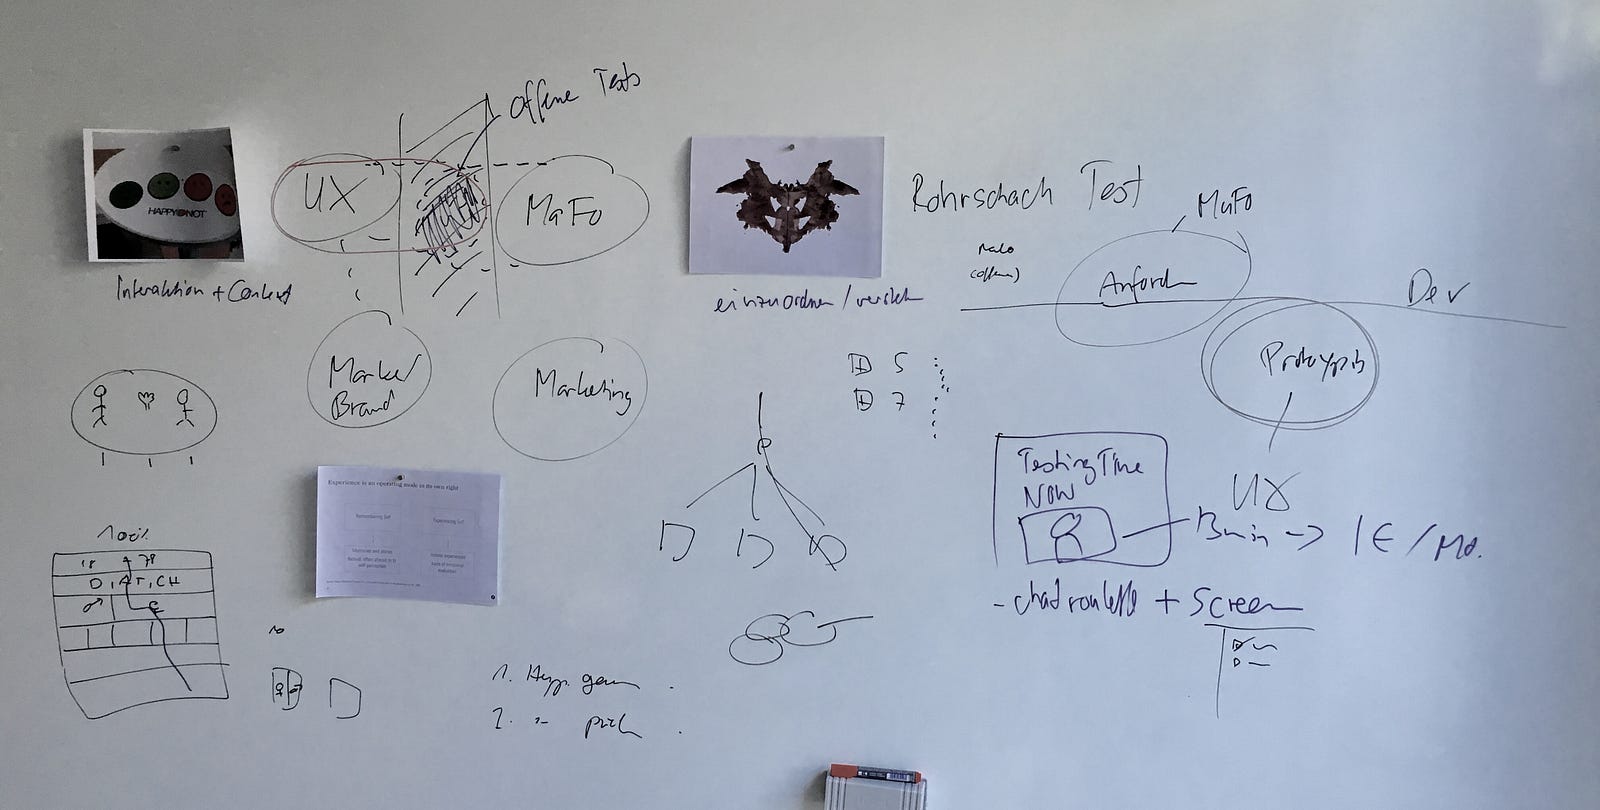 Offene Tests
UX
MaFo
HAPPY NOT
Interaktion + Context
Rohrschach Test
MaFo
(offen)
Anford
Dev
einzuordnen / versteh
Marke/
Brand
Marketing
5
7
Prototyping
Experience is an operating mode in its own right
Remembering Self
Experiencing Self
TestingTime
NOW
UX
3min -> 1€/Mo.
- chatroulette + Screen
100%
18 78
D, AT, CH
♂ ♀
1. Hyp. gen
2. " prüf